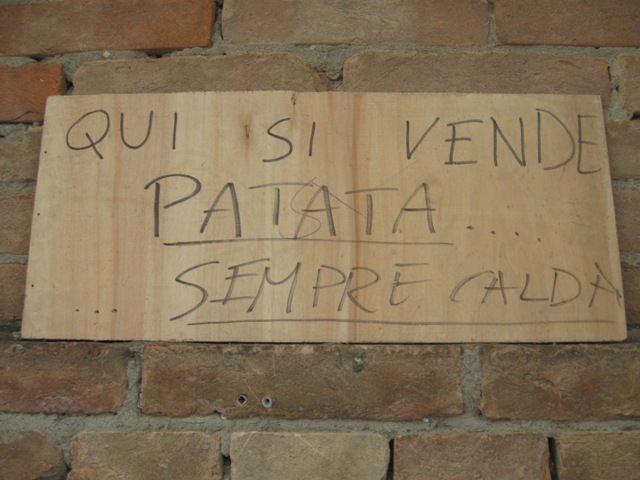 QUI SI VENDE
PATATA.....
... SEMPRE CALDA